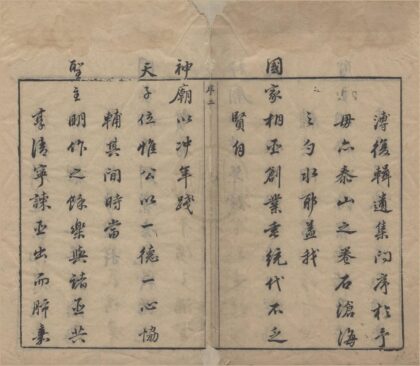 溥復輯遺集問序於予
毋亦泰山之卷石滄海
之勺水耶蓋我
國家相臣創業垂統代不乏
賢自
序二
神廟以冲年踐
天子位惟公以一德一心協
輔其間時當
聖主明作之餘樂與諸臣共
享清寧諫臣出而